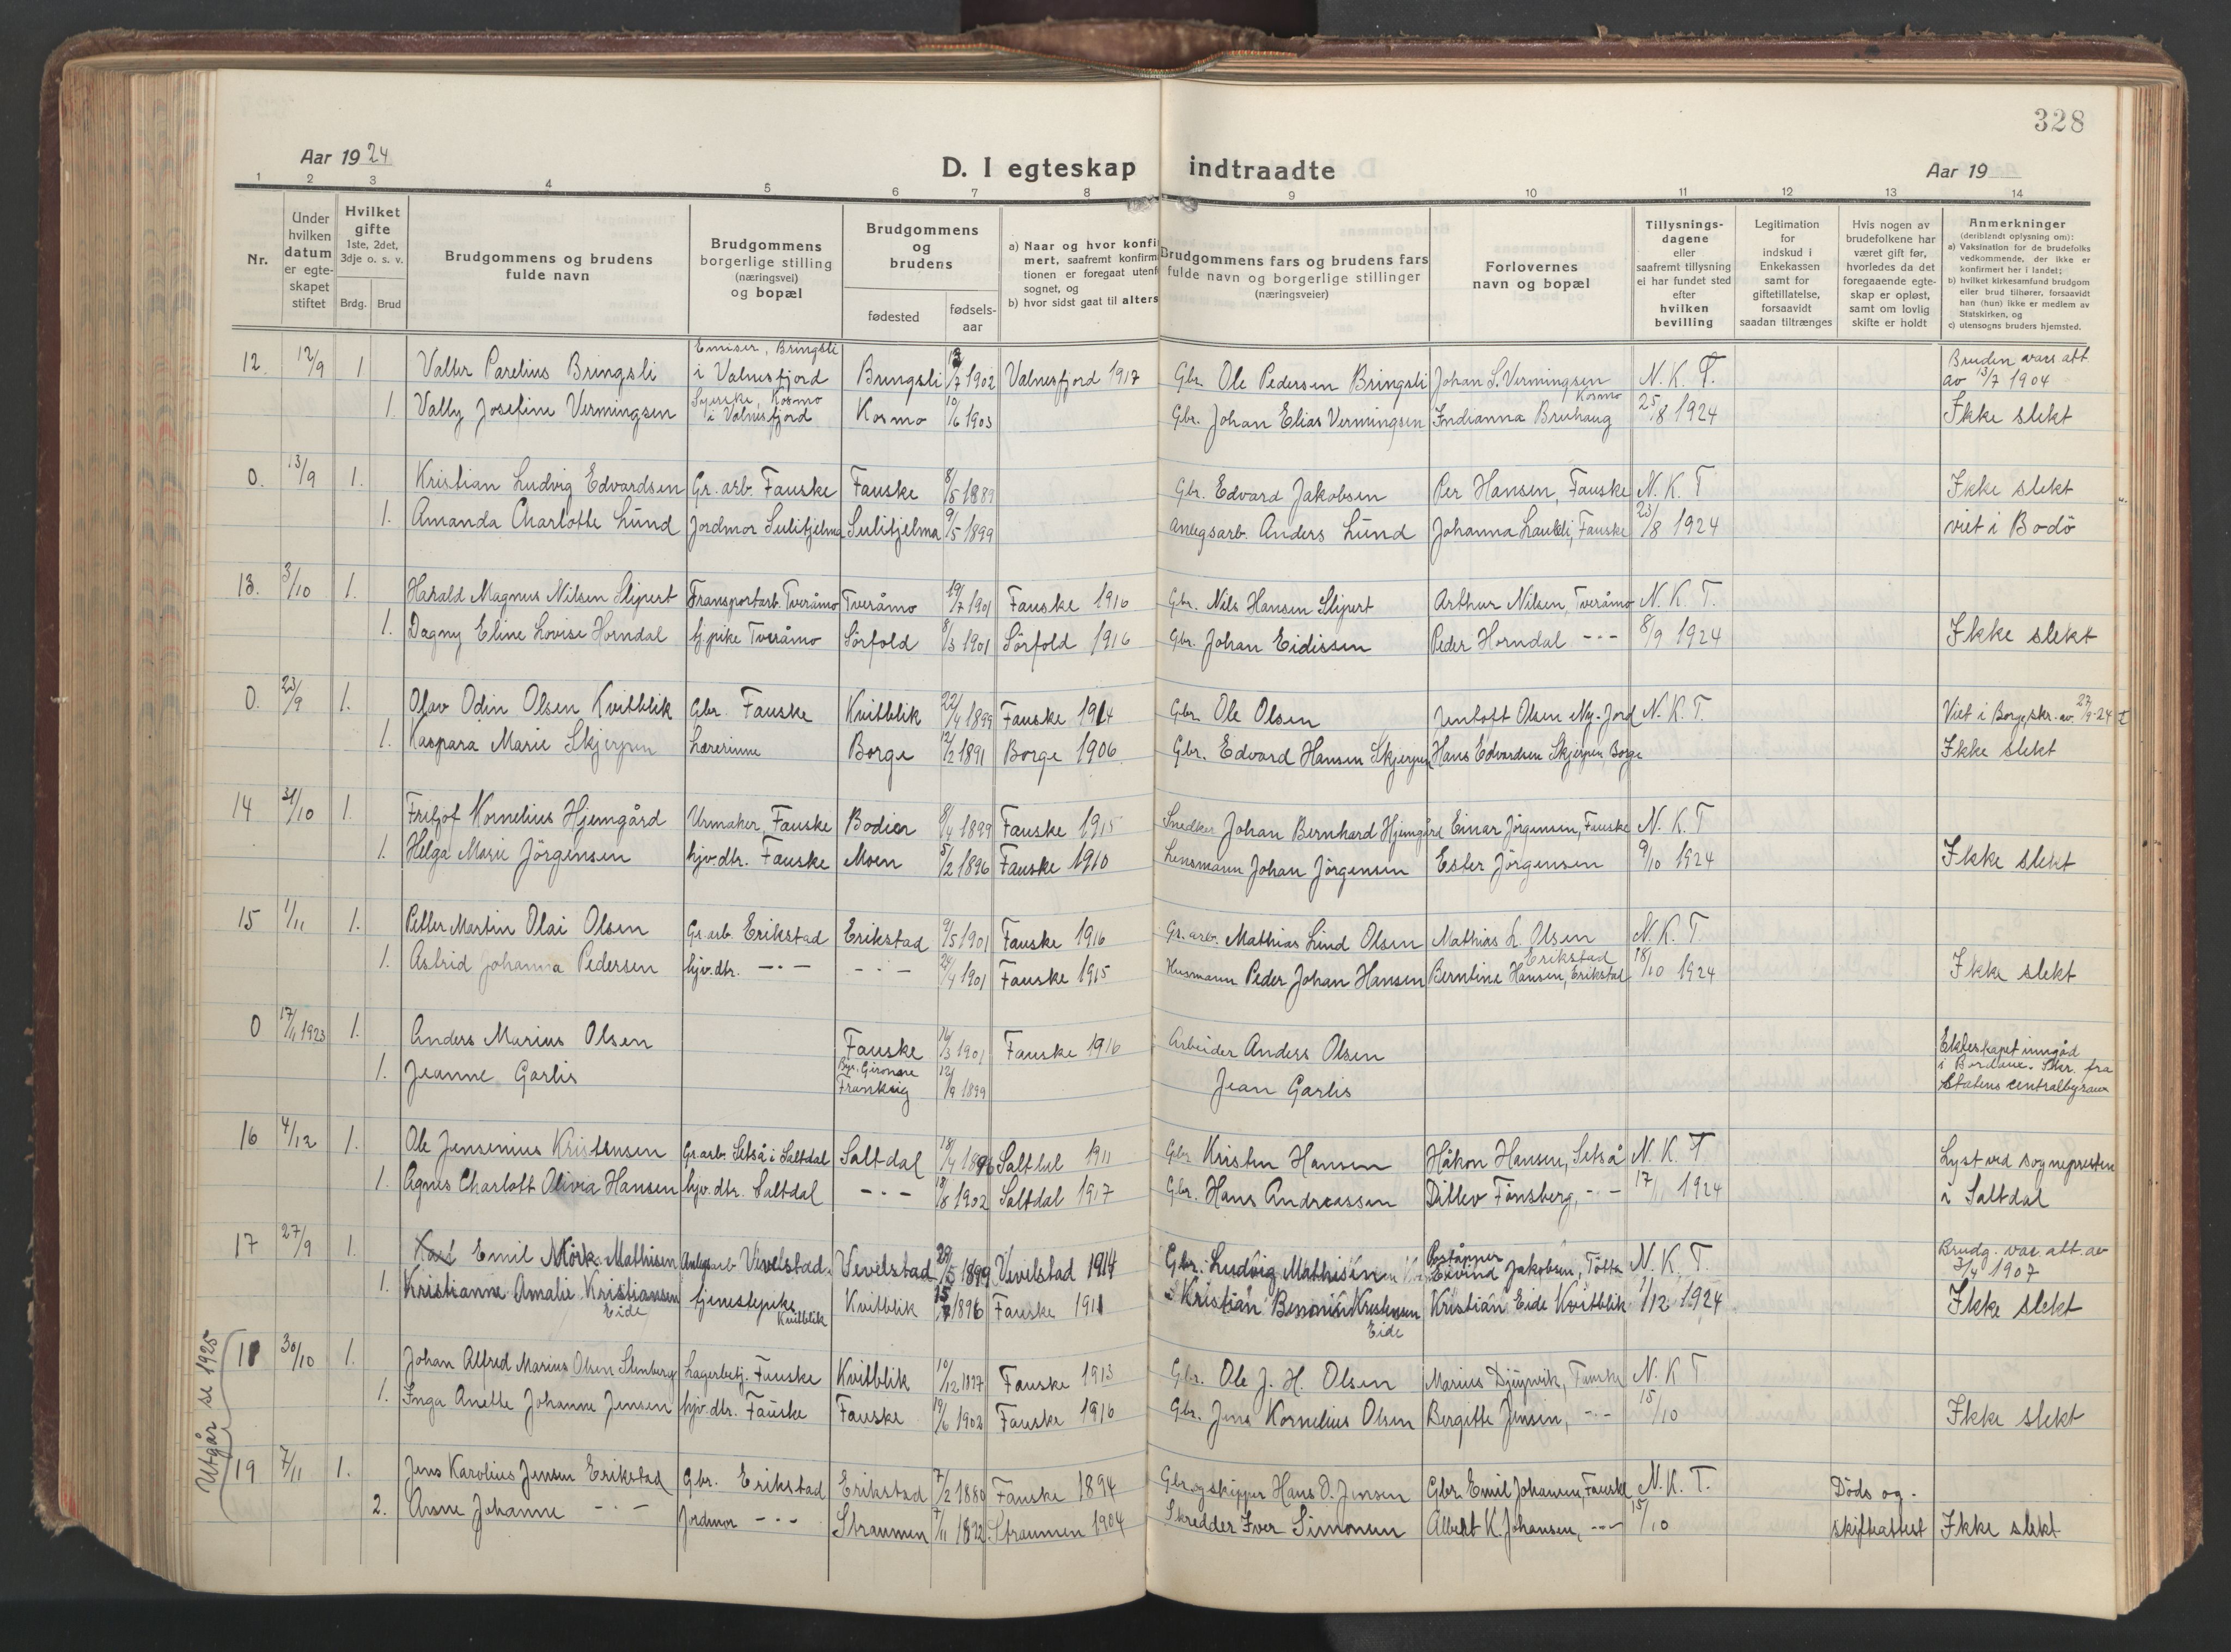 328
Aar 1924
D. I egteskap indtraadte
Aar 19
1 2 3 4 5 6 7 8 9 10 11 12 13 14
Nr.
Under hvilken datum er egte-skapet stiftet
Hvilket gifte 1ste, 2det, 3dje o. s. v.
Brdg. Brud
Brudgommens og brudens fulde navn
Brudgommens borgerlige stilling (næringsvei) og bopæl
Brudgommens og brudens
fødested
fødsels-aar
a) Naar og hvor konfi
mert, saafremt konfirm
tionen er foregaat utenf
sognet, og
b) hvor sidst gaat til alters
Brudgommens fars og brudens fars fulde navn og borgerlige stillinger (næringsveier)
Forlovernes navn og bopæl
Tillysnings-dagene eller saafremt tillysning ei har fundet sted efter hvilken bevilling
Legitimation for indskud i Enkekassen samt for giftetillatelse, forsaavidt saadan tiltrænges
Hvis nogen av brudefolkene har været gift før, hvorledes da det foregaaende egte-skap er opløst, samt om lovlig skifte er holdt
Anmerkninger
(deriblandt oplysning om):
a) Vaksination for de brudefolks vedkommende, der ikke er konfirmert her i landet;
b) hvilket kirkesamfund brudgom eller brud tilhører, forsaavidt han (hun) ikke er medlem av Statskirken, og
c) utensogns bruders hjemsted.
12. 12/9 1 Valter Parelius Bringsli Bringsli i Valnesfjord Bringsli /7 1902 Valnesfjord 1917 Gbr. Ole Pedersen Bringsli Johan S. Vermingsen Kosmo N. K. T. Bruden vacs. att. av 13/7 1904
1. Valby Josefine Vermingsen Syerske, Kosmo i Valnesfjord Kosmo 10/6 1903 Gbr. Johan Elias Vermingsen Indianna Bruhaug 25/8 1924 Ikke slekt
0. 13/9 1. Kristian Ludvig Edvardsen Gr. arb. Fauske Fauske 8/5 1889 Gbr. Edvard Jakobsen Per Hansen, Fauske N. K. T Ikke slekt
1. Amanda Charlotte Lund Jordmor Sulitjelma Sulitjelma 9/5 1899 Anlegsarb. Anders Lund Johanna Laukli, Fauske 23/8 1924 viet i Bodö
13. 3/10 1. Harald Magnus Nilsen Slipert Transportarb. Tveråmo Tveråmo 19/7 1901 Fauske 1916 Gbr. Nils Hansen Slipert Arthur Nilsen, Tveråmo N. K. T.
1. Dagny Eline Lovise Horndal tj. pike Tveråmo Sörfold 8/3 1901 Sörfold 1916 Gbr. Johan Eidissen Peder Horndal -"- 8/9 1924 Ikke slekt
0. 23/9 1. Olav Odin Olsen Kvitblik Gbr. Fauske Kvitblik 22/4 1899 Fauske 1914 Gbr. Ole Olsen Jentoft Olsen Ny-Jord N. K. T. Viet i Borge, skr. av 27/9-24
1. Kaspara Marie Skjerpen Lærerinne Borge 12/2 1891 Borge 1906 Gbr. Edvard Hansen Skjerpen Hans Edvardsen Skjerpen, Borge Ikke slekt
14 31/10 1. Fritjof Kornelius Hjemgård Urmaker, Fauske Bodin 8/4 1899 Fauske 1915 Snedker Johan Bernhard Hjemgård Einar Jörgensen, Fauske N. K. T
1. Helga Marie Jörgensen hjv. dtr. Fauske Moen 5/2 1896 Fauske 1910 Lensmann Johan Jörgensen Ester Jörgensen 9/10 1924 Ikke slekt
15 1/11 1. Petter Martin Olai Olsen Gr. arb. Erikstad Erikstad 9/5 1901 Fauske 1916 Gr. arb. Mathias Lind Olsen Mathias L. Olsen Erikstad N. K. T.
1. Astrid Johanna Pedersen hjv. dtr. -"- -"- 24/4 1901 Fauske 1915 Husmann Peder Johan Hansen Berntine Hansen, Erikstad 18/10 1924 Ikke slekt
0 17/11 1923 1. Anders Marius Olsen Fauske 16/3 1901 Fauske 1916 Arbeider Anders Olsen Ekteskapet inngåd
1. Jeanne Garlis Gironne Frankrig 12/9 1899 Jean Garlis i Bordaux. Skr. fra Statens centralbyraa
16 4/12 1. Ole Jensenius Kristensen Gr. arb. Setså i Saltdal Saltdal 18/4 1896 Saltdal 1911 Gbr. Kristen Hansen Håkon Hansen, Setså N. K. T Lyst ved sognepresten
1. Agnes Charlott Olivia Hansen hjv. dtr. Saltdal -"- 18/8 1902 Saltdal 1917 Gbr. Hans Andreassen Ditlev Tönsberg, -"- 17/11 1924 i Saltdal
17 27/9 1. Karl Emil Mörk Mathisen Anlegsarb Vevelstad Vevelstad 29/5 1899 Vevelstad 1914 Gbr. Ludvig Mathisen Eivind Jakobsen, Tötta N. K. T. Brudg. vac. att. av 7/4 1907
1. Kristianne Amalie Kristiansen Eide tjenestepike Kvitblik Kvitblik 15/7 1896 Fauske 1911 Kristian Benonin Kristensen Eide Kristian Eide Kvitblik 1/12 1924 Ikke slekt
Utgår se 1925
18 30/10 1. Johan Alfred Marius Olsen Stenberg Lagerbetj. Fauske Kvitblik 10/12 1897 Fauske 1913 Gbr. Ole J. H. Olsen Marius Djupvik, Fauske N. K T
1. Inga Anette Johanne Jensen hjv. dtr. Fauske Fauske 19/6 1902 Fauske 1916 Gbr. Jens Kornelius Olsen Bergitte Jensen, -"- 15/10 Ikke slekt
19 7/11 1. Jens Karolius Jensen Erikstad Gbr. Erikstad Erikstad 7/2 1880 Fauske 1894 Gbr. og skipper Hans D. Jensen Gbr. Emil Johansen, Fauske N. K. T. Döds og
2. Anne Johanne -"- Jordmor -"- Straumen 7/11 1892 Straumen 1904 Skredder Iver Simonsen Albert K. Johansen, -"- 15/10 skifteattest Ikke slekt